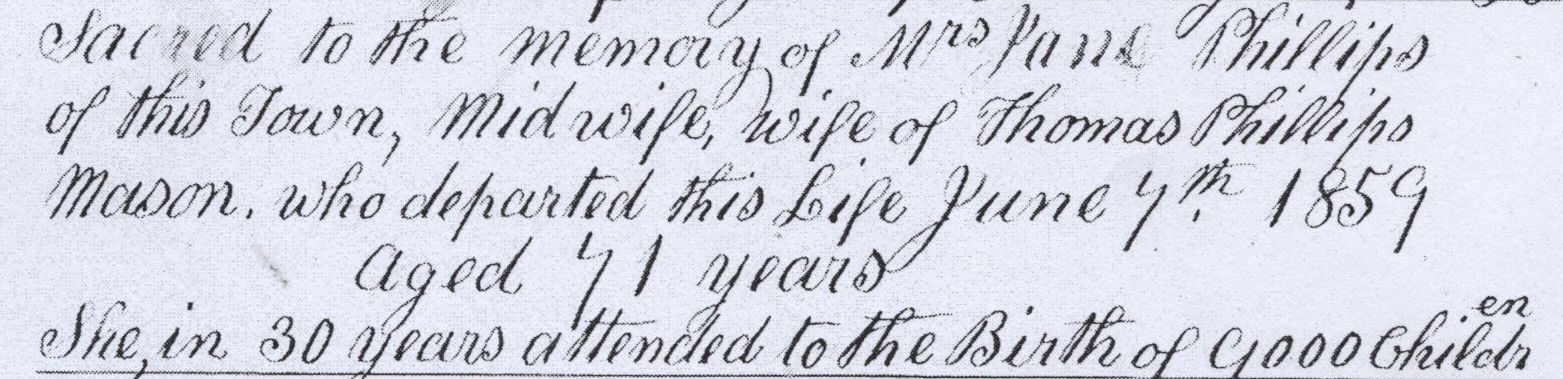 Sacred to the memory of Mrs Jane Phillips
of this Town, Midwife, wife of Thomas Phillips
Mason. who departed this Life June 7th 1859
Aged 71 years
She, in 30 years attended to the Birth of 9000 Children